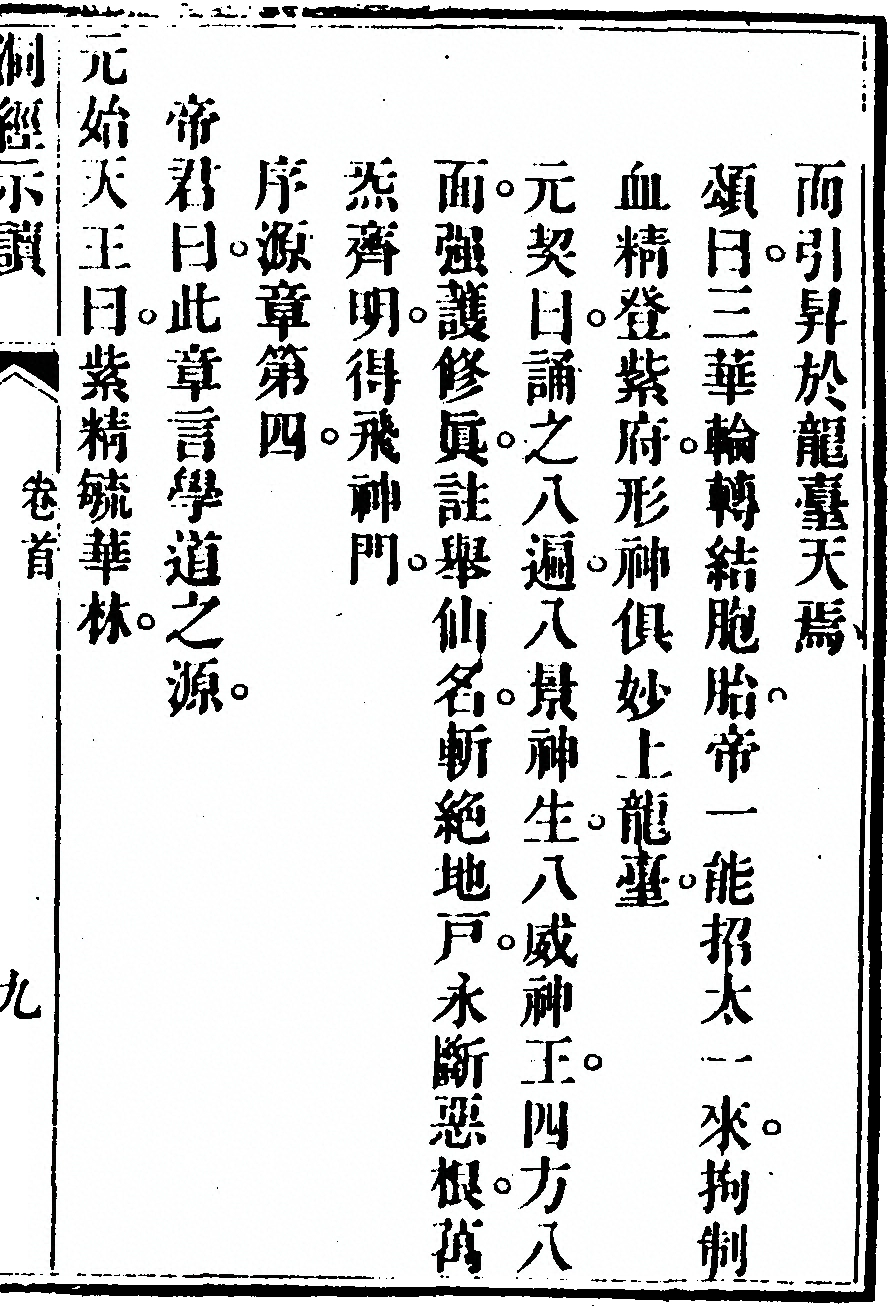 而引昇於龍臺天焉
頌曰。三華輪轉結胞胎。帝一能招太一來。拘制
血精登紫府。形神俱妙上龍臺。
元契曰。誦之八遍。八景神生。八威神王。四方八
面。强護修眞。註舉仙名。斬絶地戸。永斷惡根。萬
炁齊明。得飛神門。
序源章第四。
帝君曰。此章言學道之源。
元始天王曰。紫精毓華林。
洞經示讀
卷首
九